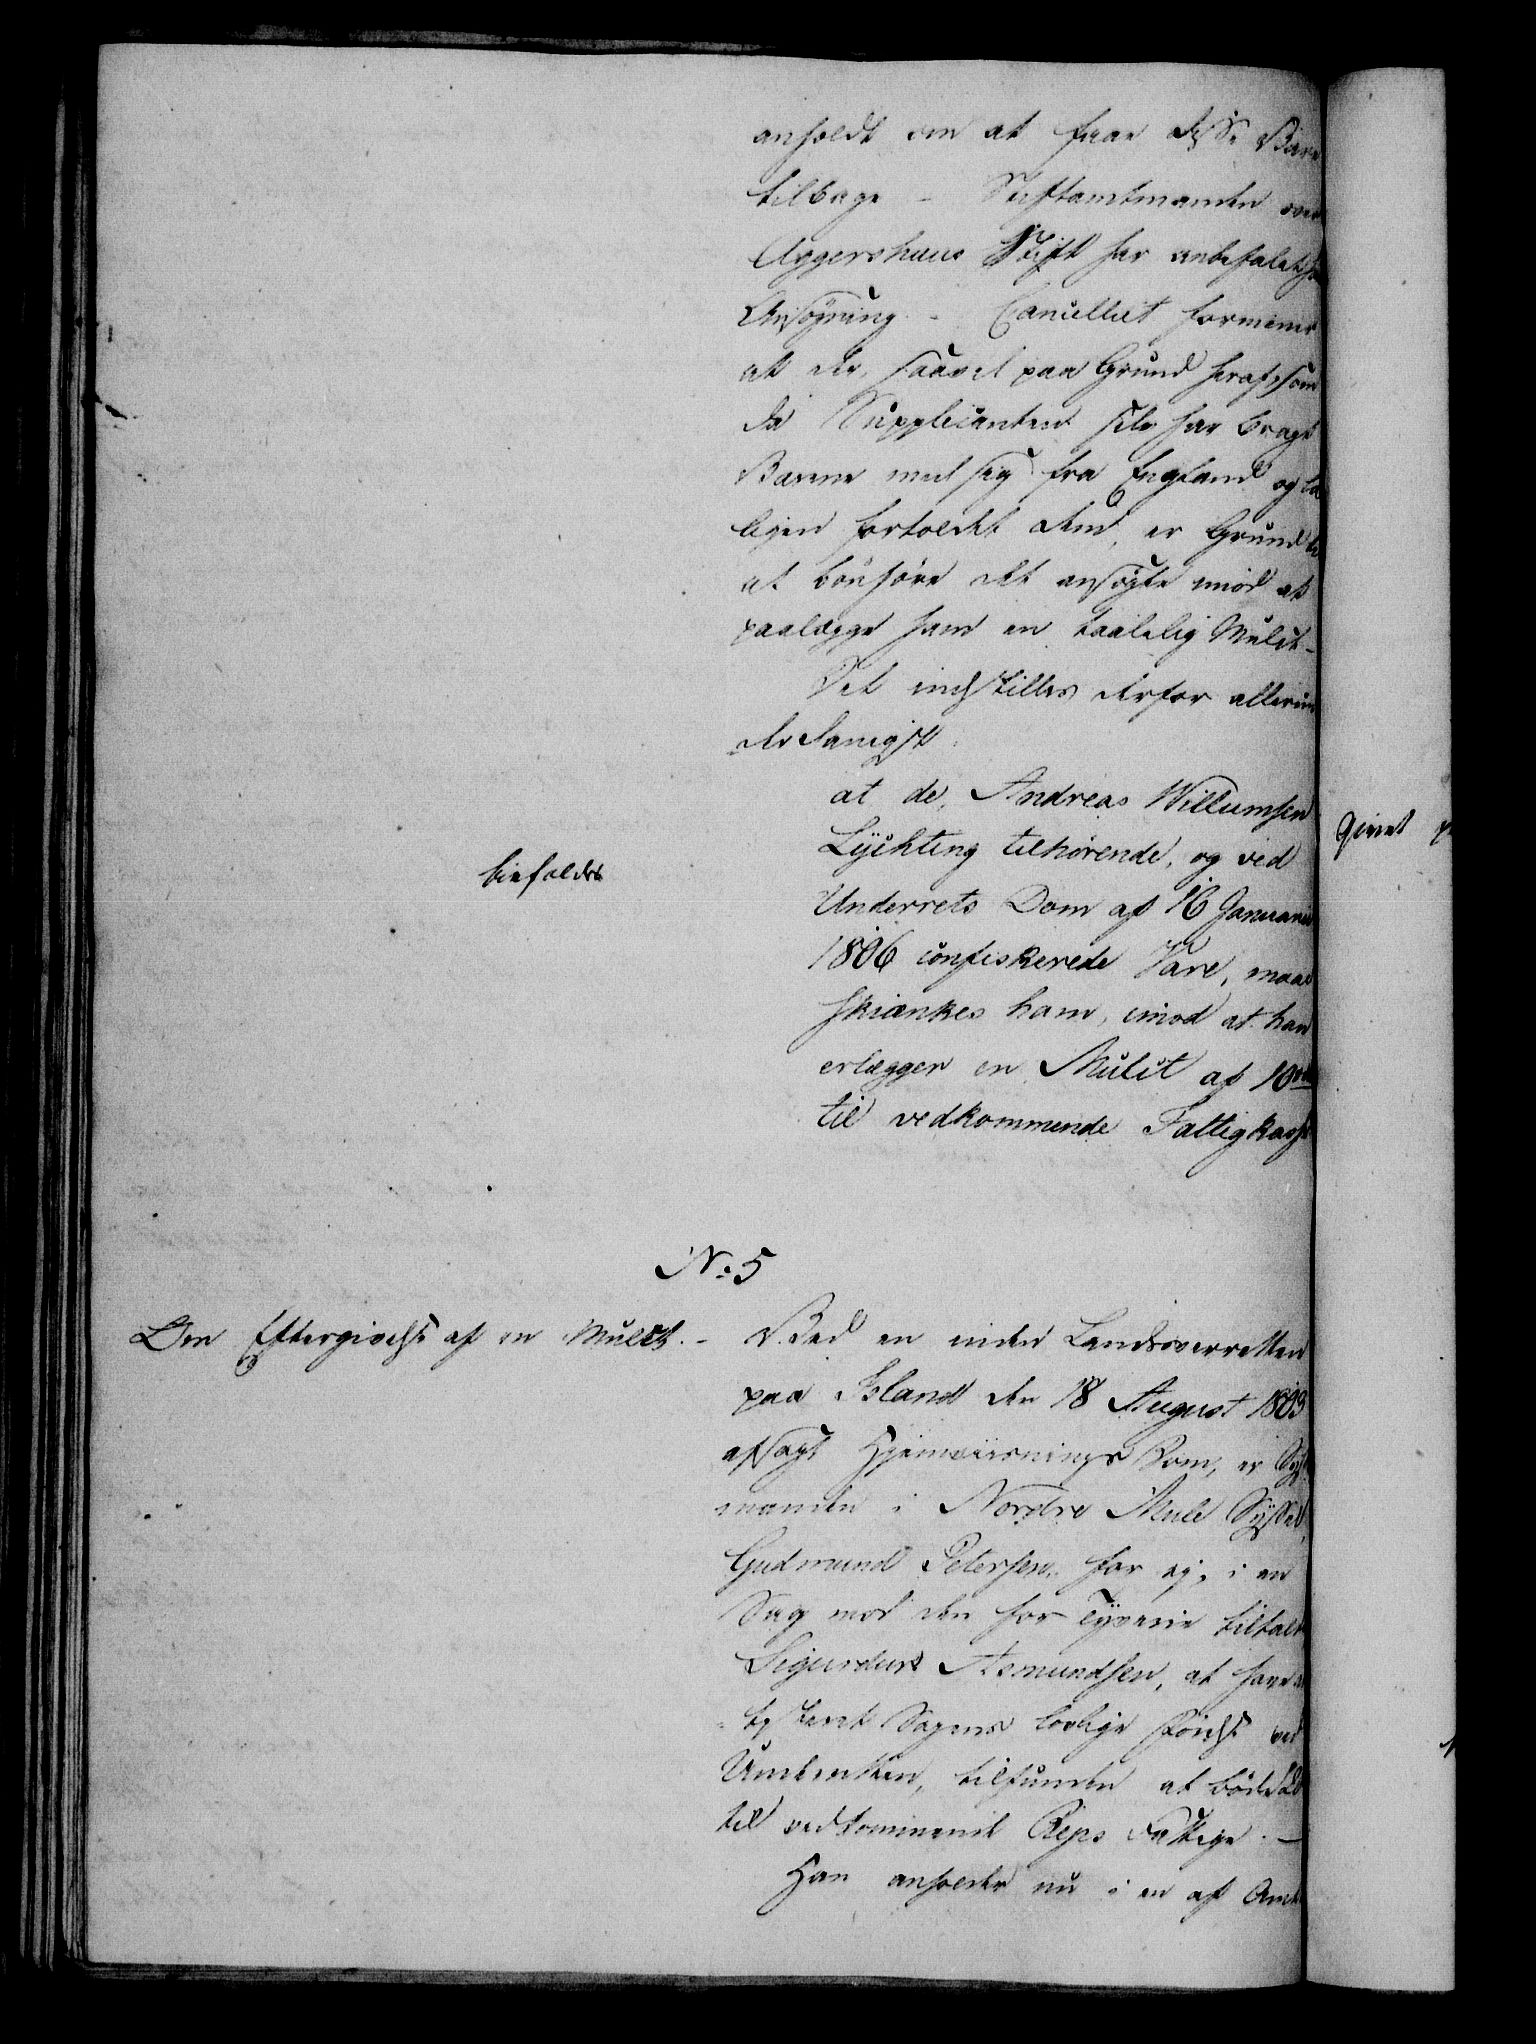 anholdt om at faae disse Vare
tilbage - Stiftamtmanden over
Aggershuus Stift har anbefalet
Ansøgning. - Cancelliet formener
at der, saavel paa Grund heraf, som
da Supplicanten selv har bragt
Varene med sig fra England og
ligen fortoldet dem, er Grund
at bønhøre det ansøgte imod at
paalægge ham en taalelig Mulct -
Det indstilles derfor allerun
derdanigst
at de, Andreas Willumsen
Lÿchting tilhørende, og ved
Underrets Dom af 16 Januarii
1806 confiskerede Vare, maae
skiænkes ham, imod at han
erlægger en Mulct af 10 rd
til vedkommende Fattigkasse
bifaldes
No: 5
Om Eftergivelse af en Mulct. -
Ved en inden Landsoverretten
paa Island den 18 August 1803
afsagt Hjemviisnings Dom, er Sÿssel
manden i Nordre Mule Sÿssel,
Gudmund Petersen, for ej, i en
Sag mod den for Tyverie tiltalte
Sigurdur Asmundsen, at have
Sagens lovlige Førelse ved
Underretten, tilfunden at bøde
til vedkommende Reps Fattige. -
Han anholder nu i en af Amt
Givet